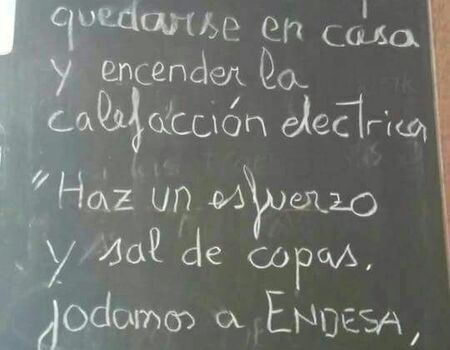 quedarse en casa
y encender la
calefacción electrica
"Haz un esfuerzo
y sal de copas.
Jodamos a ENDESA,